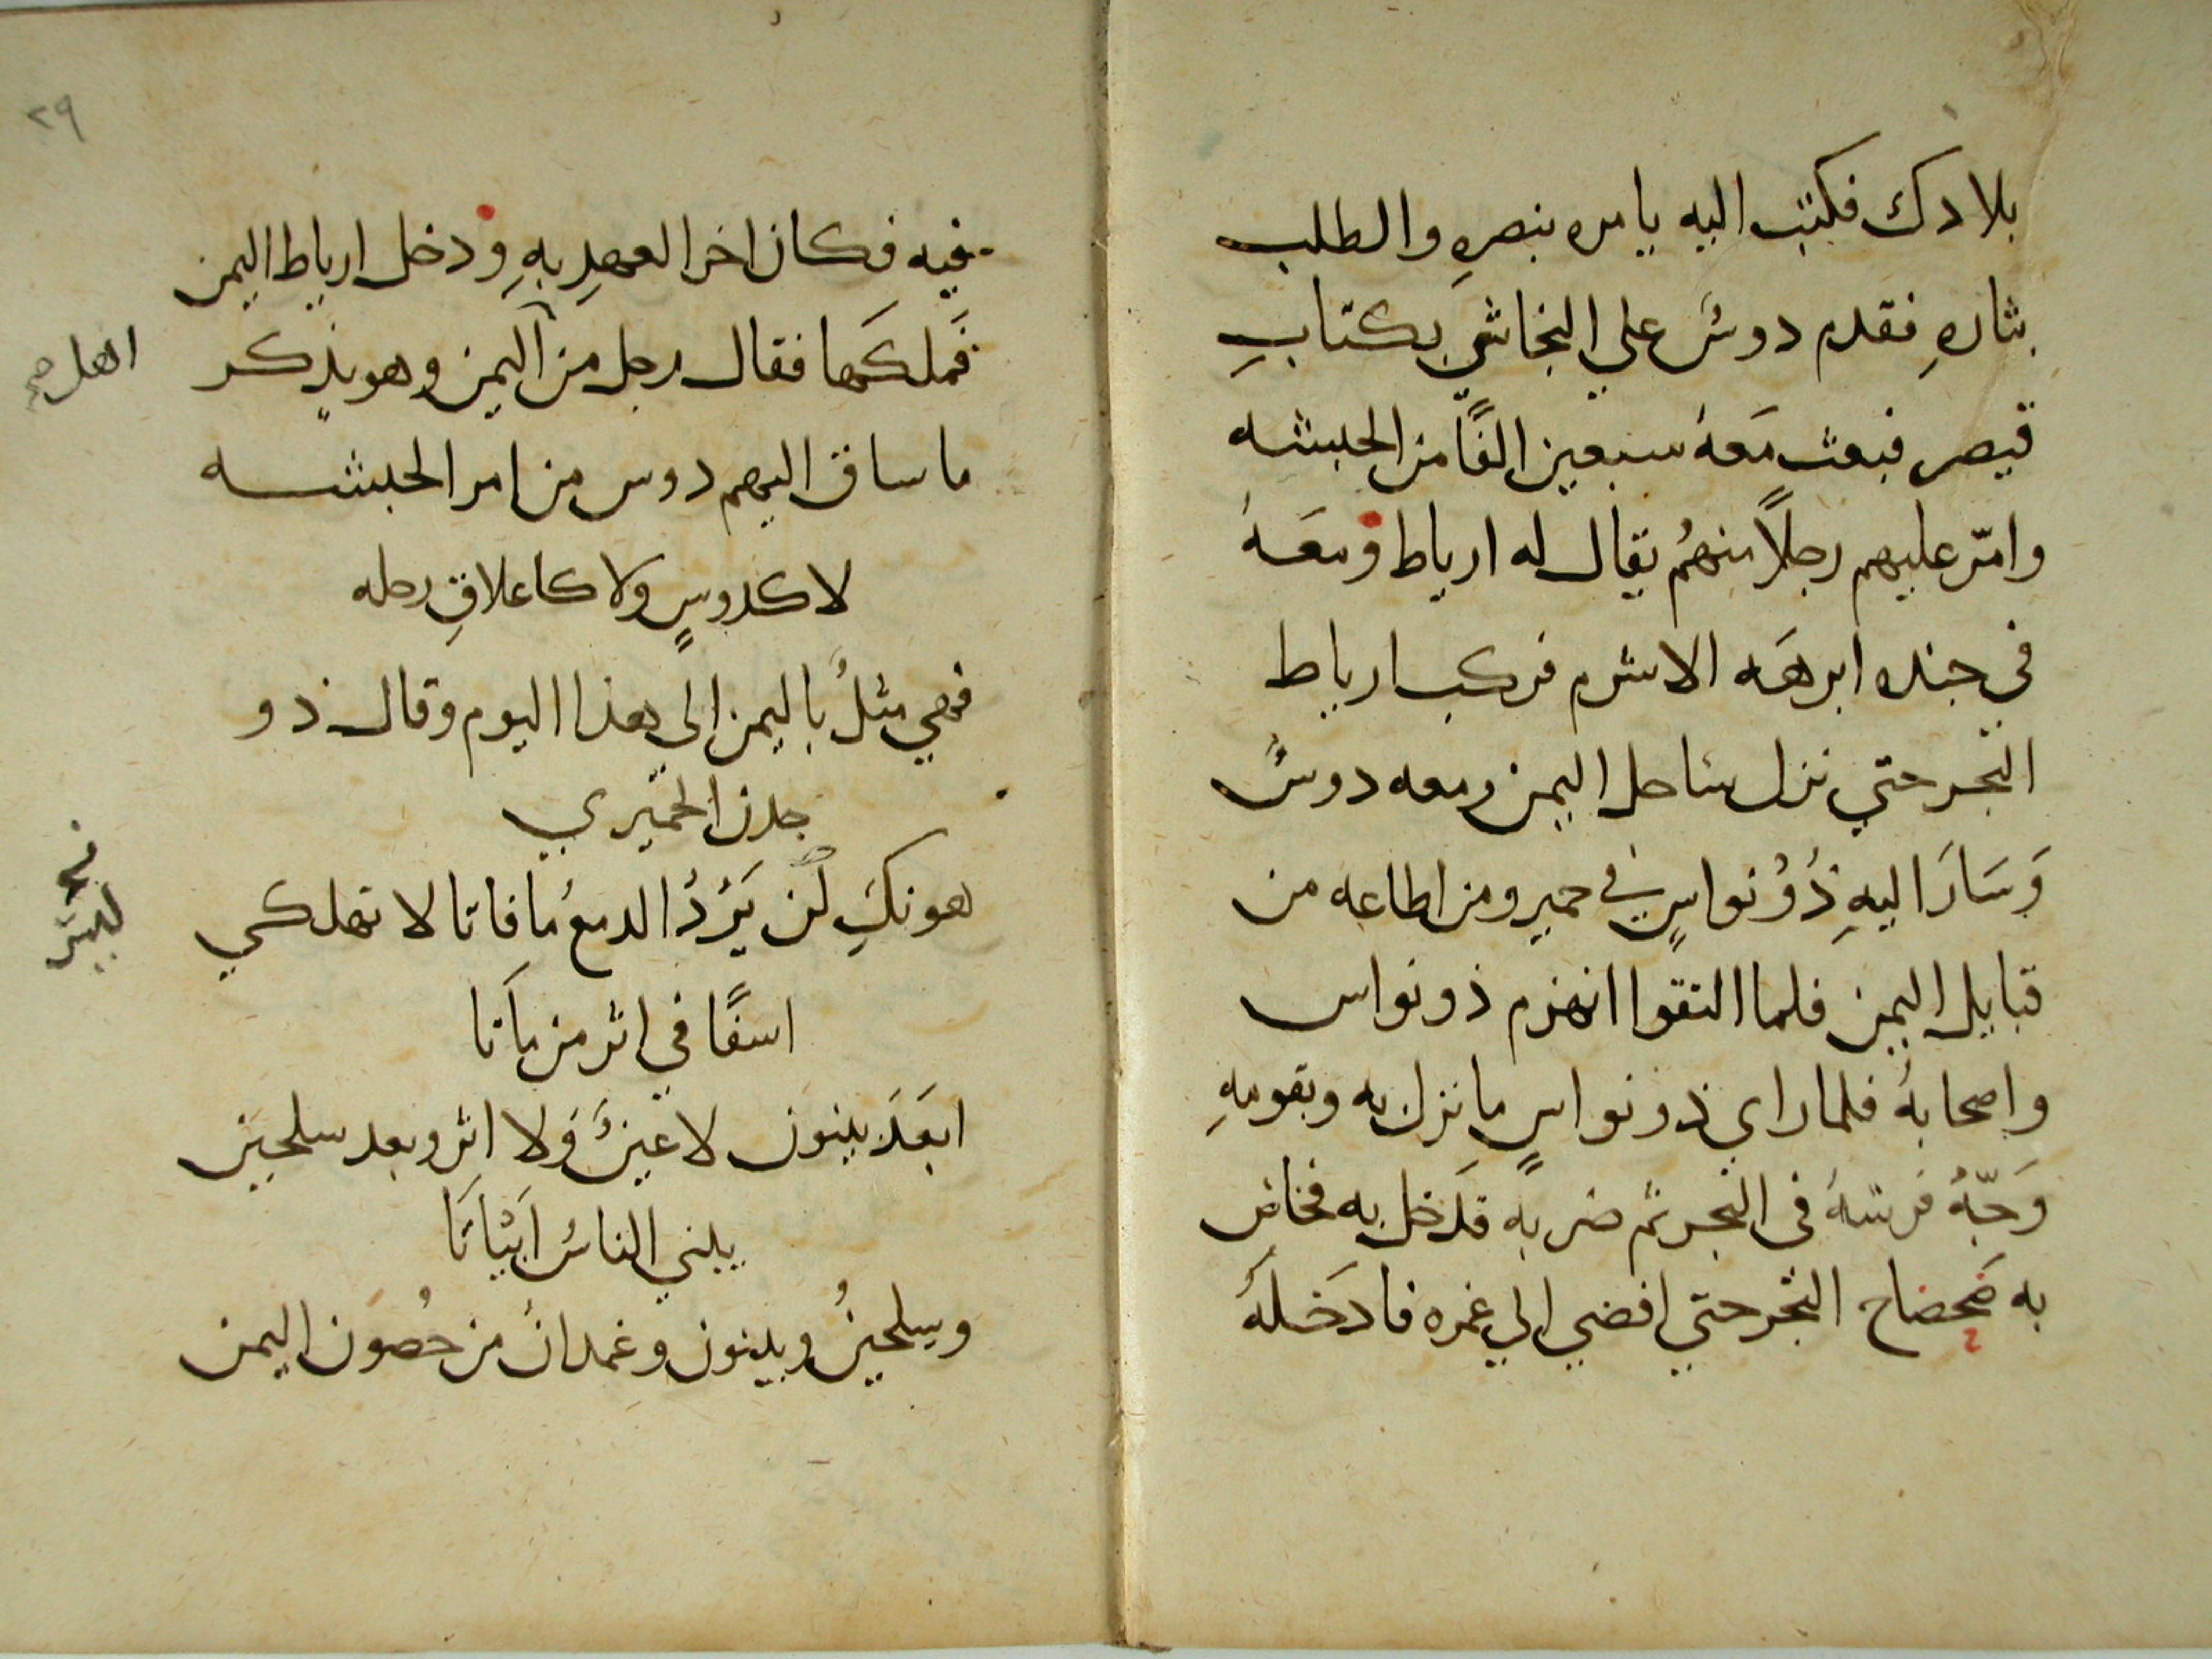 بلادك فكتب اليه يامره بنصرهِ والطلب
بثارهِ فقدم دوسٌ علي النجاشي بكتابِ
قيصر فبعث مَعهُ سبعين الفًا من الحبشه
وامّر عليهم رجلاً منهُم يقال له ارياط ومعَهُ
في جنده ابرهَه الاشرم فركب ارياط
البحر حتي نزل ساحل اليمن ومعه دوسٌ
وَسَارَ اليهِ ذُوْ نواسٍ في حمير ومن اطاعه من
قبايل اليمن فلما التقوا انهزم ذو نواس
واصحابهُ فلما راي ذو نواسٍ ما نزل به وبقومهِ
وَجّهُ فرسَهُ في البحر ثم ضربه فدَخل به فخاض
به ضَحضاح البحر حتي افضي الي غمره فادَخَلهُ
٢٩
فيه فكان اخر العهدِ بهِ ودخل ارياط اليمن
فَملكَها فقال رجل من اليمن وهو يذكر
اهل صح
ما ساق اليهم دوس من امر الحبشه
لا كدوسٍ ولا كاعلاقِ رحله
فهي مثلٌ باليمن الي هذا اليوم وقال ذو
جدن الحميري
هونكِ لن يَرُدُ الدمعُ ما فاتا لا تهلكي
ليس
اسفًا في اثر من ماتا
ابعَدَ بينون لا عينٌ وَلا اثر وبعد سلحين
يبني الناسُ ابَيَاتَا
وسلحينُ وبينون وغمدانُ من حُصون اليمن